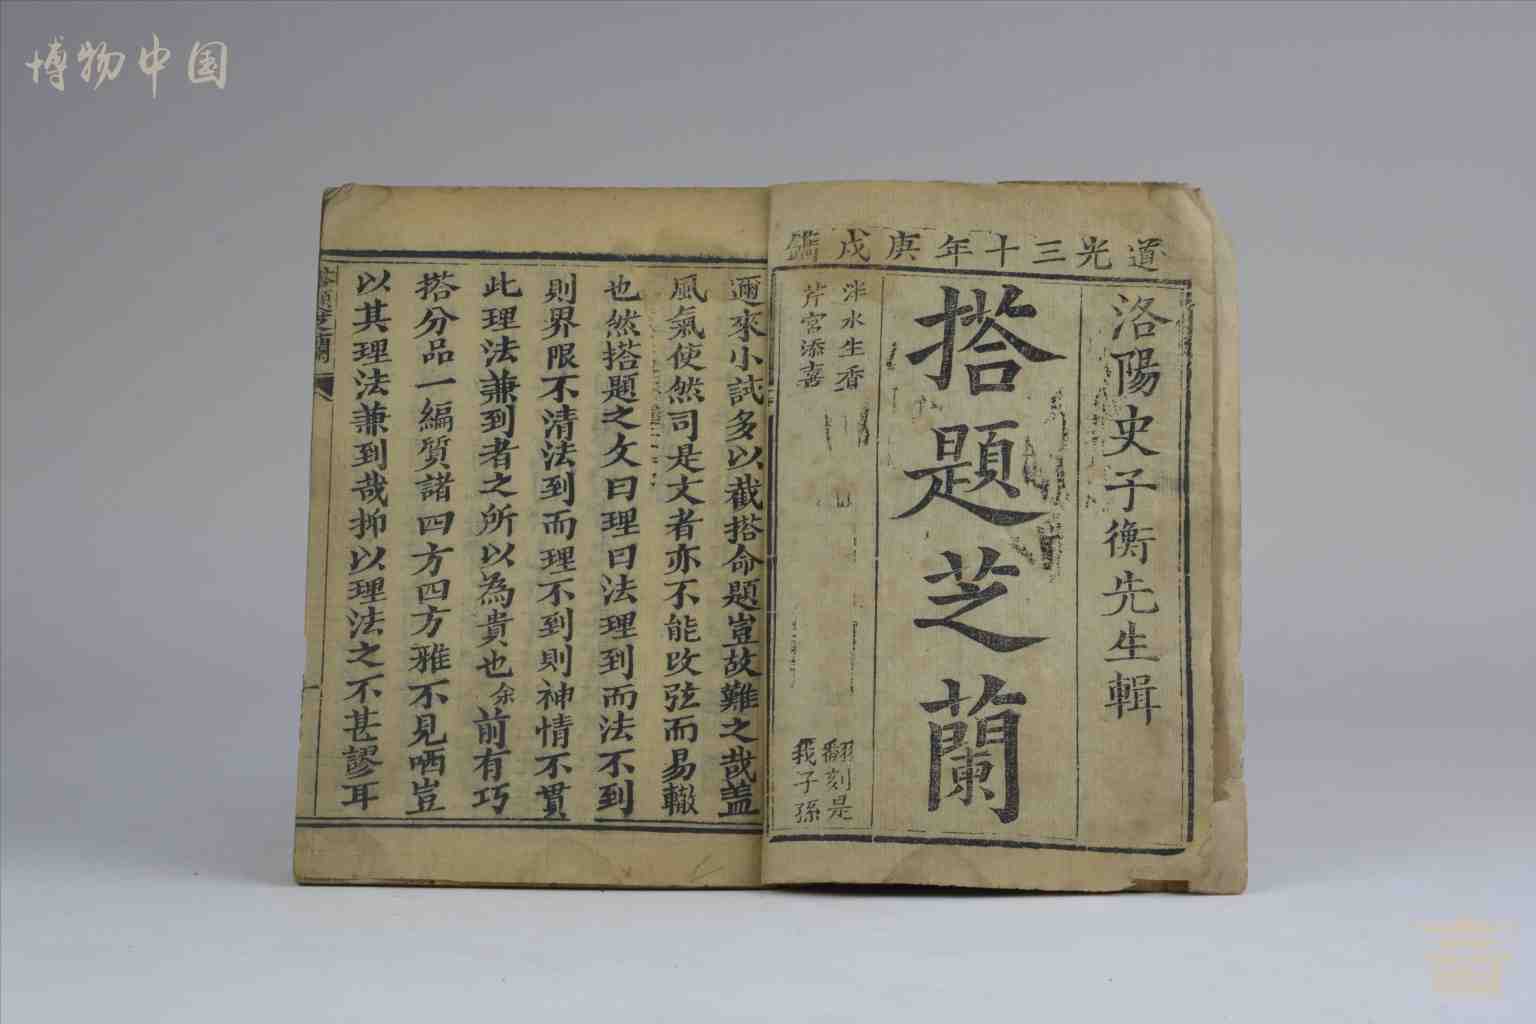 博物中国
道光三十年庚戌鐫
洛陽史子衡先生輯
搭題芝蘭
泮水生香
芹宮添喜
翻刻是
我子孫
邇來小試多以截搭命題豈故難之哉盖
風氣使然司是文者亦不能改弦而易轍
也然搭題之文曰理曰法理到而法不到
則界限不清法到而理不到則神情不貫
此理法兼到者之所以為貴也余前有巧
搭分品一編質諸四方四方雅不見哂豈
以其理法兼到哉抑以理法之不甚謬耳
搭題芝蘭